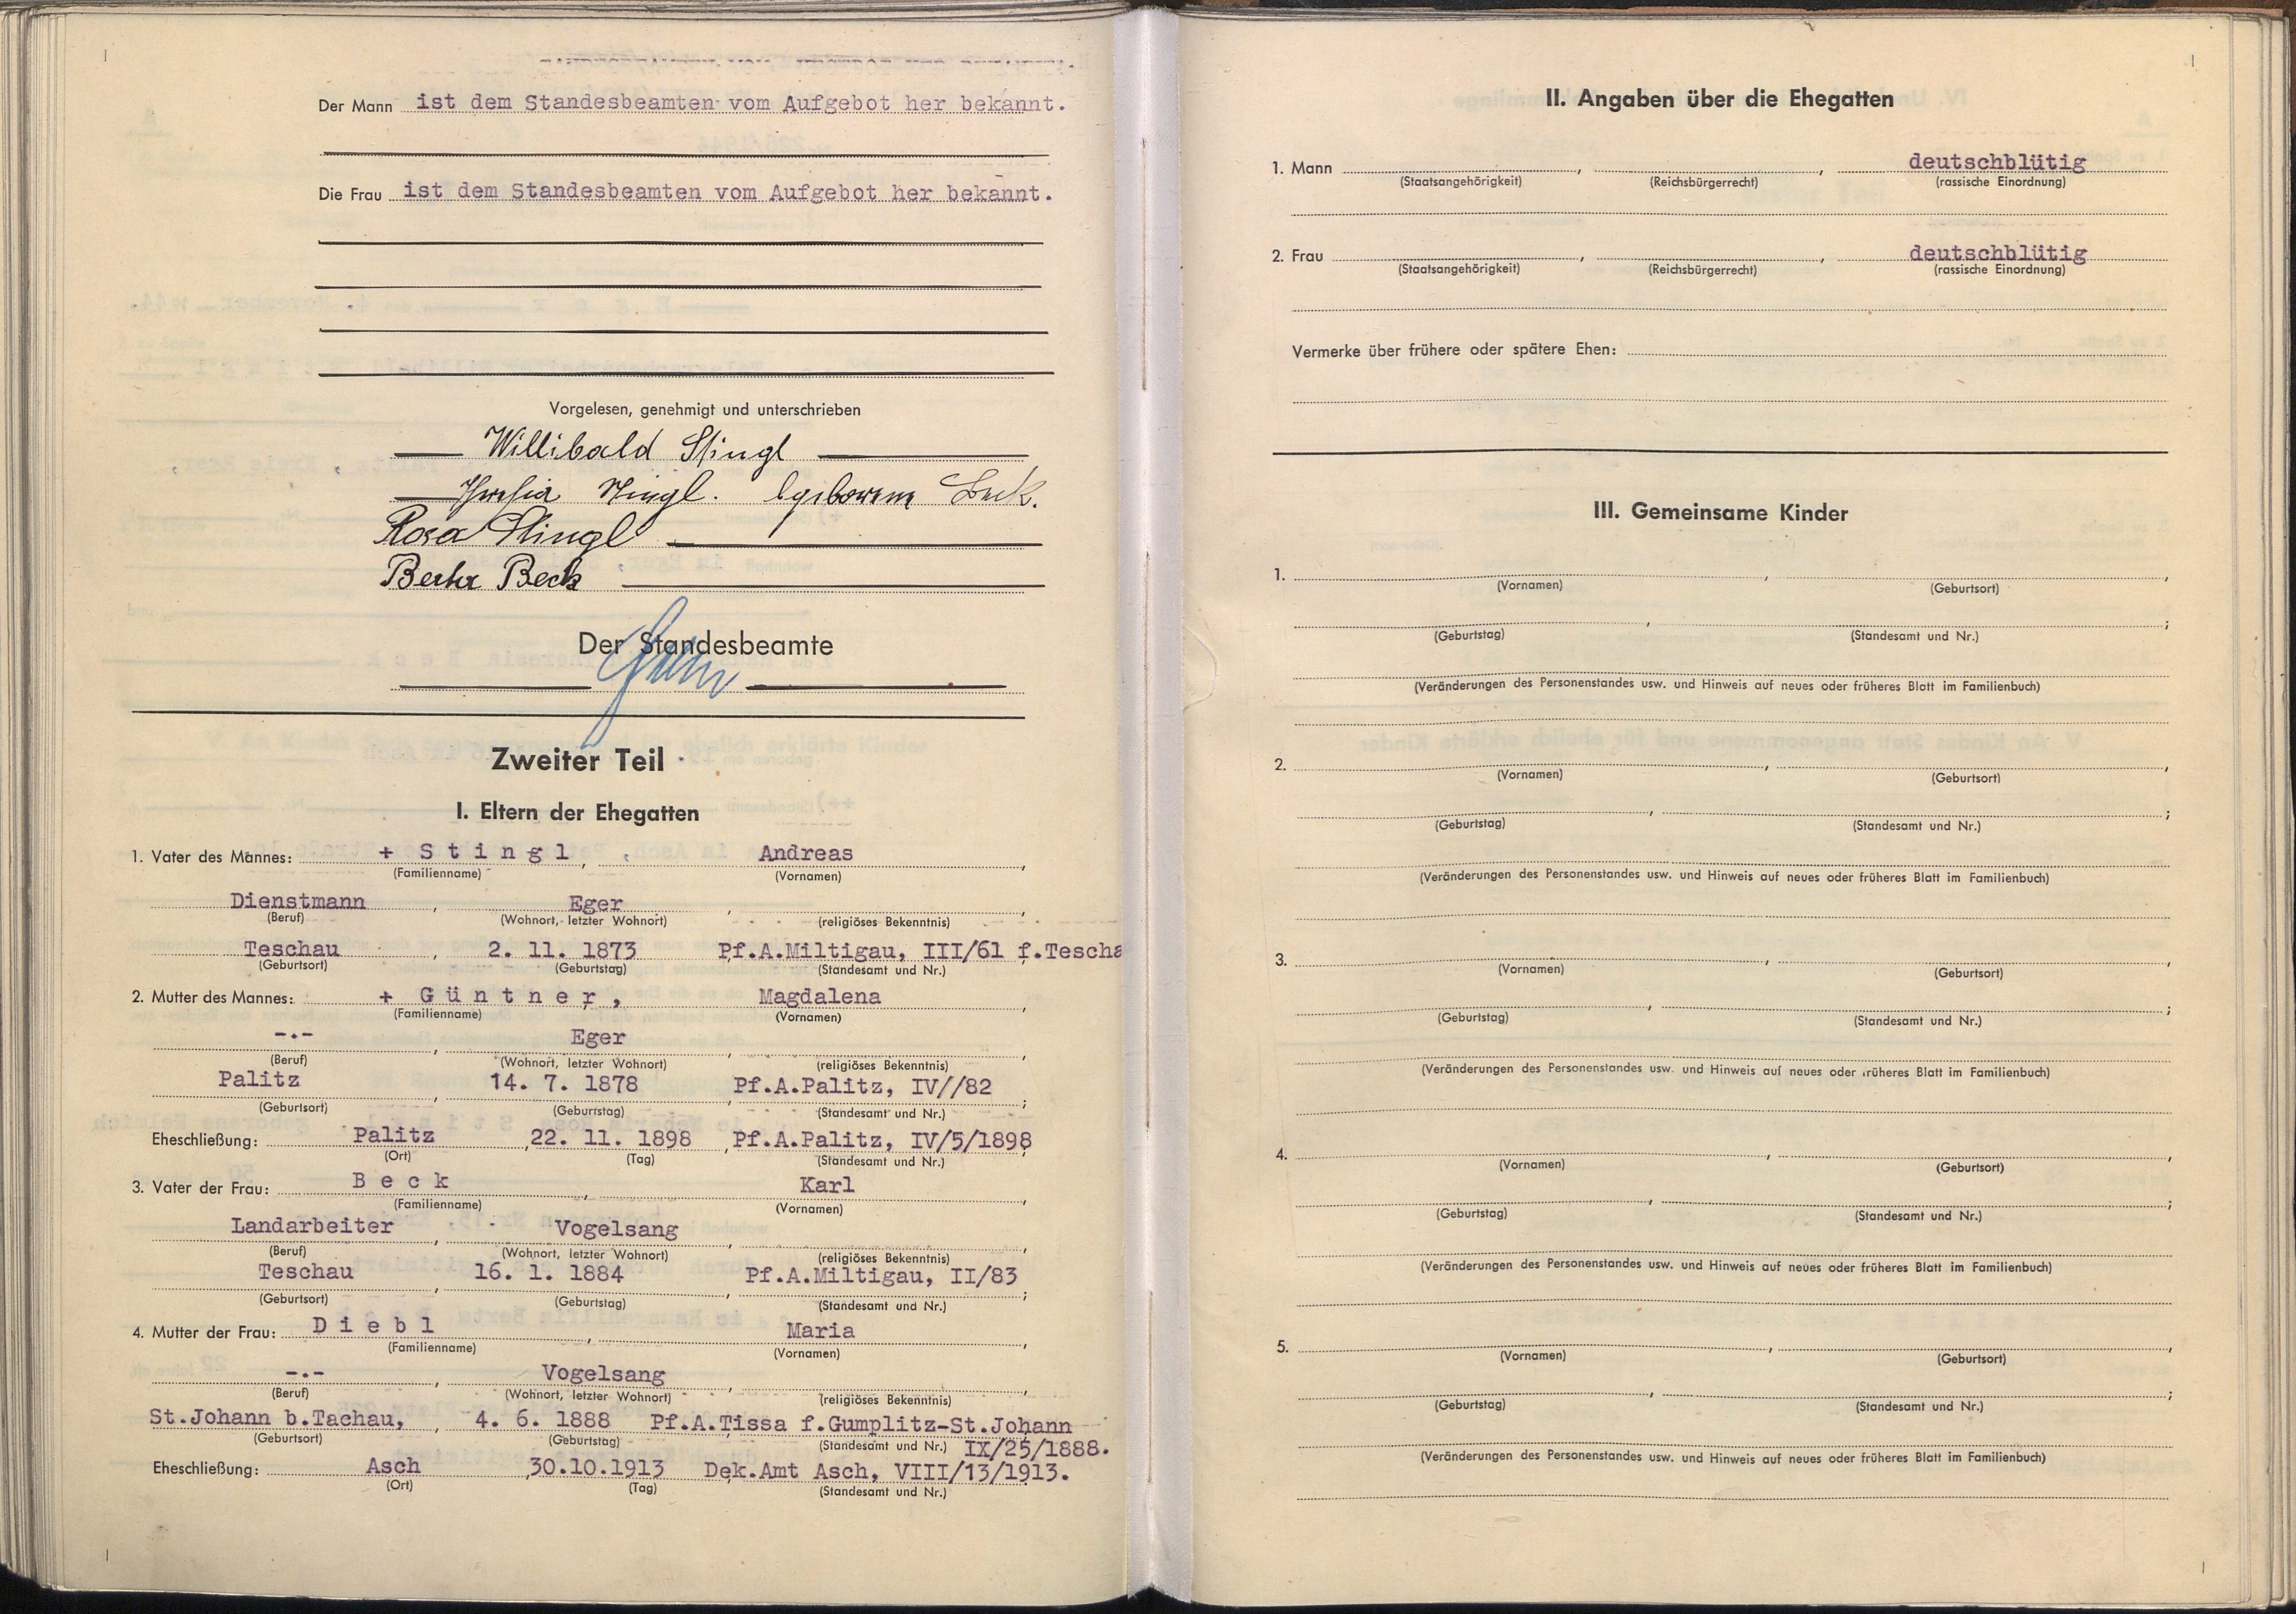 Der Mann ist dem Standesbeamten vom Aufgebot her bekannt.
Die Frau ist dem Standesbeamten vom Aufgebot her bekannt.
Vorgelesen, genehmigt und unterschrieben
Willibald Stingl
Theresia Stingl. geborene Beck.
Rosa Stingl
Berta Beck
Der Standesbeamte
Zweiter Teil
I. Eltern der Ehegatten
1. Vater des Mannes: + Stingl, Andreas,
(Familienname) (Vornamen)
Dienstmann, Eger,
(Beruf) (Wohnort, letzter Wohnort) (religiöses Bekenntnis)
Teschau, 2. 11. 1873 Pf.A.Miltigau, III/61 f.Tescha
(Geburtsort) (Geburtstag) (Standesamt und Nr.)
2. Mutter des Mannes: + Güntner, Magdalena,
(Familienname) (Vornamen)
-.-, Eger,
(Beruf) (Wohnort, letzter Wohnort) (religiöses Bekenntnis)
Palitz, 14. 7. 1878, Pf.A.Palitz, IV//82;
(Geburtsort) (Geburtstag) (Standesamt und Nr.)
Eheschließung: Palitz, 22. 11. 1898, Pf.A.Palitz, IV/5/1898
(Ort) (Tag) (Standesamt und Nr.)
3. Vater der Frau: Beck, Karl,
(Familienname) (Vornamen)
Landarbeiter, Vogelsang,
(Beruf) (Wohnort, letzter Wohnort) (religiöses Bekenntnis)
Teschau, 16. 1. 1884, Pf.A.Miltigau, II/83;
(Geburtsort) (Geburtstag) (Standesamt und Nr.)
4. Mutter der Frau: Diebl, Maria,
(Familienname) (Vornamen)
-.-, Vogelsang,
(Beruf) (Wohnort, letzter Wohnort) (religiöses Bekenntnis)
St.Johann b.Tachau, 4. 6. 1888 Pf.A.Tissa f.Gumplitz-St.Johann
(Geburtsort) (Geburtstag) (Standesamt und Nr.) IX/25/1888.
Eheschließung: Asch, 30.10.1913 Dek.Amt Asch, VIII/13/1913.
(Ort) (Tag) (Standesamt und Nr.)
II. Angaben über die Ehegatten
1. Mann , , deutschblütig
(Staatsangehörigkeit) (Reichsbürgerrecht) (rassische Einordnung)
2. Frau , , deutschblütig
(Staatsangehörigkeit) (Reichsbürgerrecht) (rassische Einordnung)
Vermerke über frühere oder spätere Ehen:
III. Gemeinsame Kinder
1. , ,
(Vornamen) (Geburtsort)
, ;
(Geburtstag) (Standesamt und Nr.)
(Veränderungen des Personenstandes usw. und Hinweis auf neues oder früheres Blatt im Familienbuch)
2. , ,
(Vornamen) (Geburtsort)
, ;
(Geburtstag) (Standesamt und Nr.)
(Veränderungen des Personenstandes usw. und Hinweis auf neues oder früheres Blatt im Familienbuch)
3. , ,
(Vornamen) (Geburtsort)
, ;
(Geburtstag) (Standesamt und Nr.)
(Veränderungen des Personenstandes usw. und Hinweis auf neues oder früheres Blatt im Familienbuch)
4. , ,
(Vornamen) (Geburtsort)
, ;
(Geburtstag) (Standesamt und Nr.)
(Veränderungen des Personenstandes usw. und Hinweis auf neues oder früheres Blatt im Familienbuch)
5. , ,
(Vornamen) (Geburtsort)
, ;
(Geburtstag) (Standesamt und Nr.)
(Veränderungen des Personenstandes usw. und Hinweis auf neues oder früheres Blatt im Familienbuch)